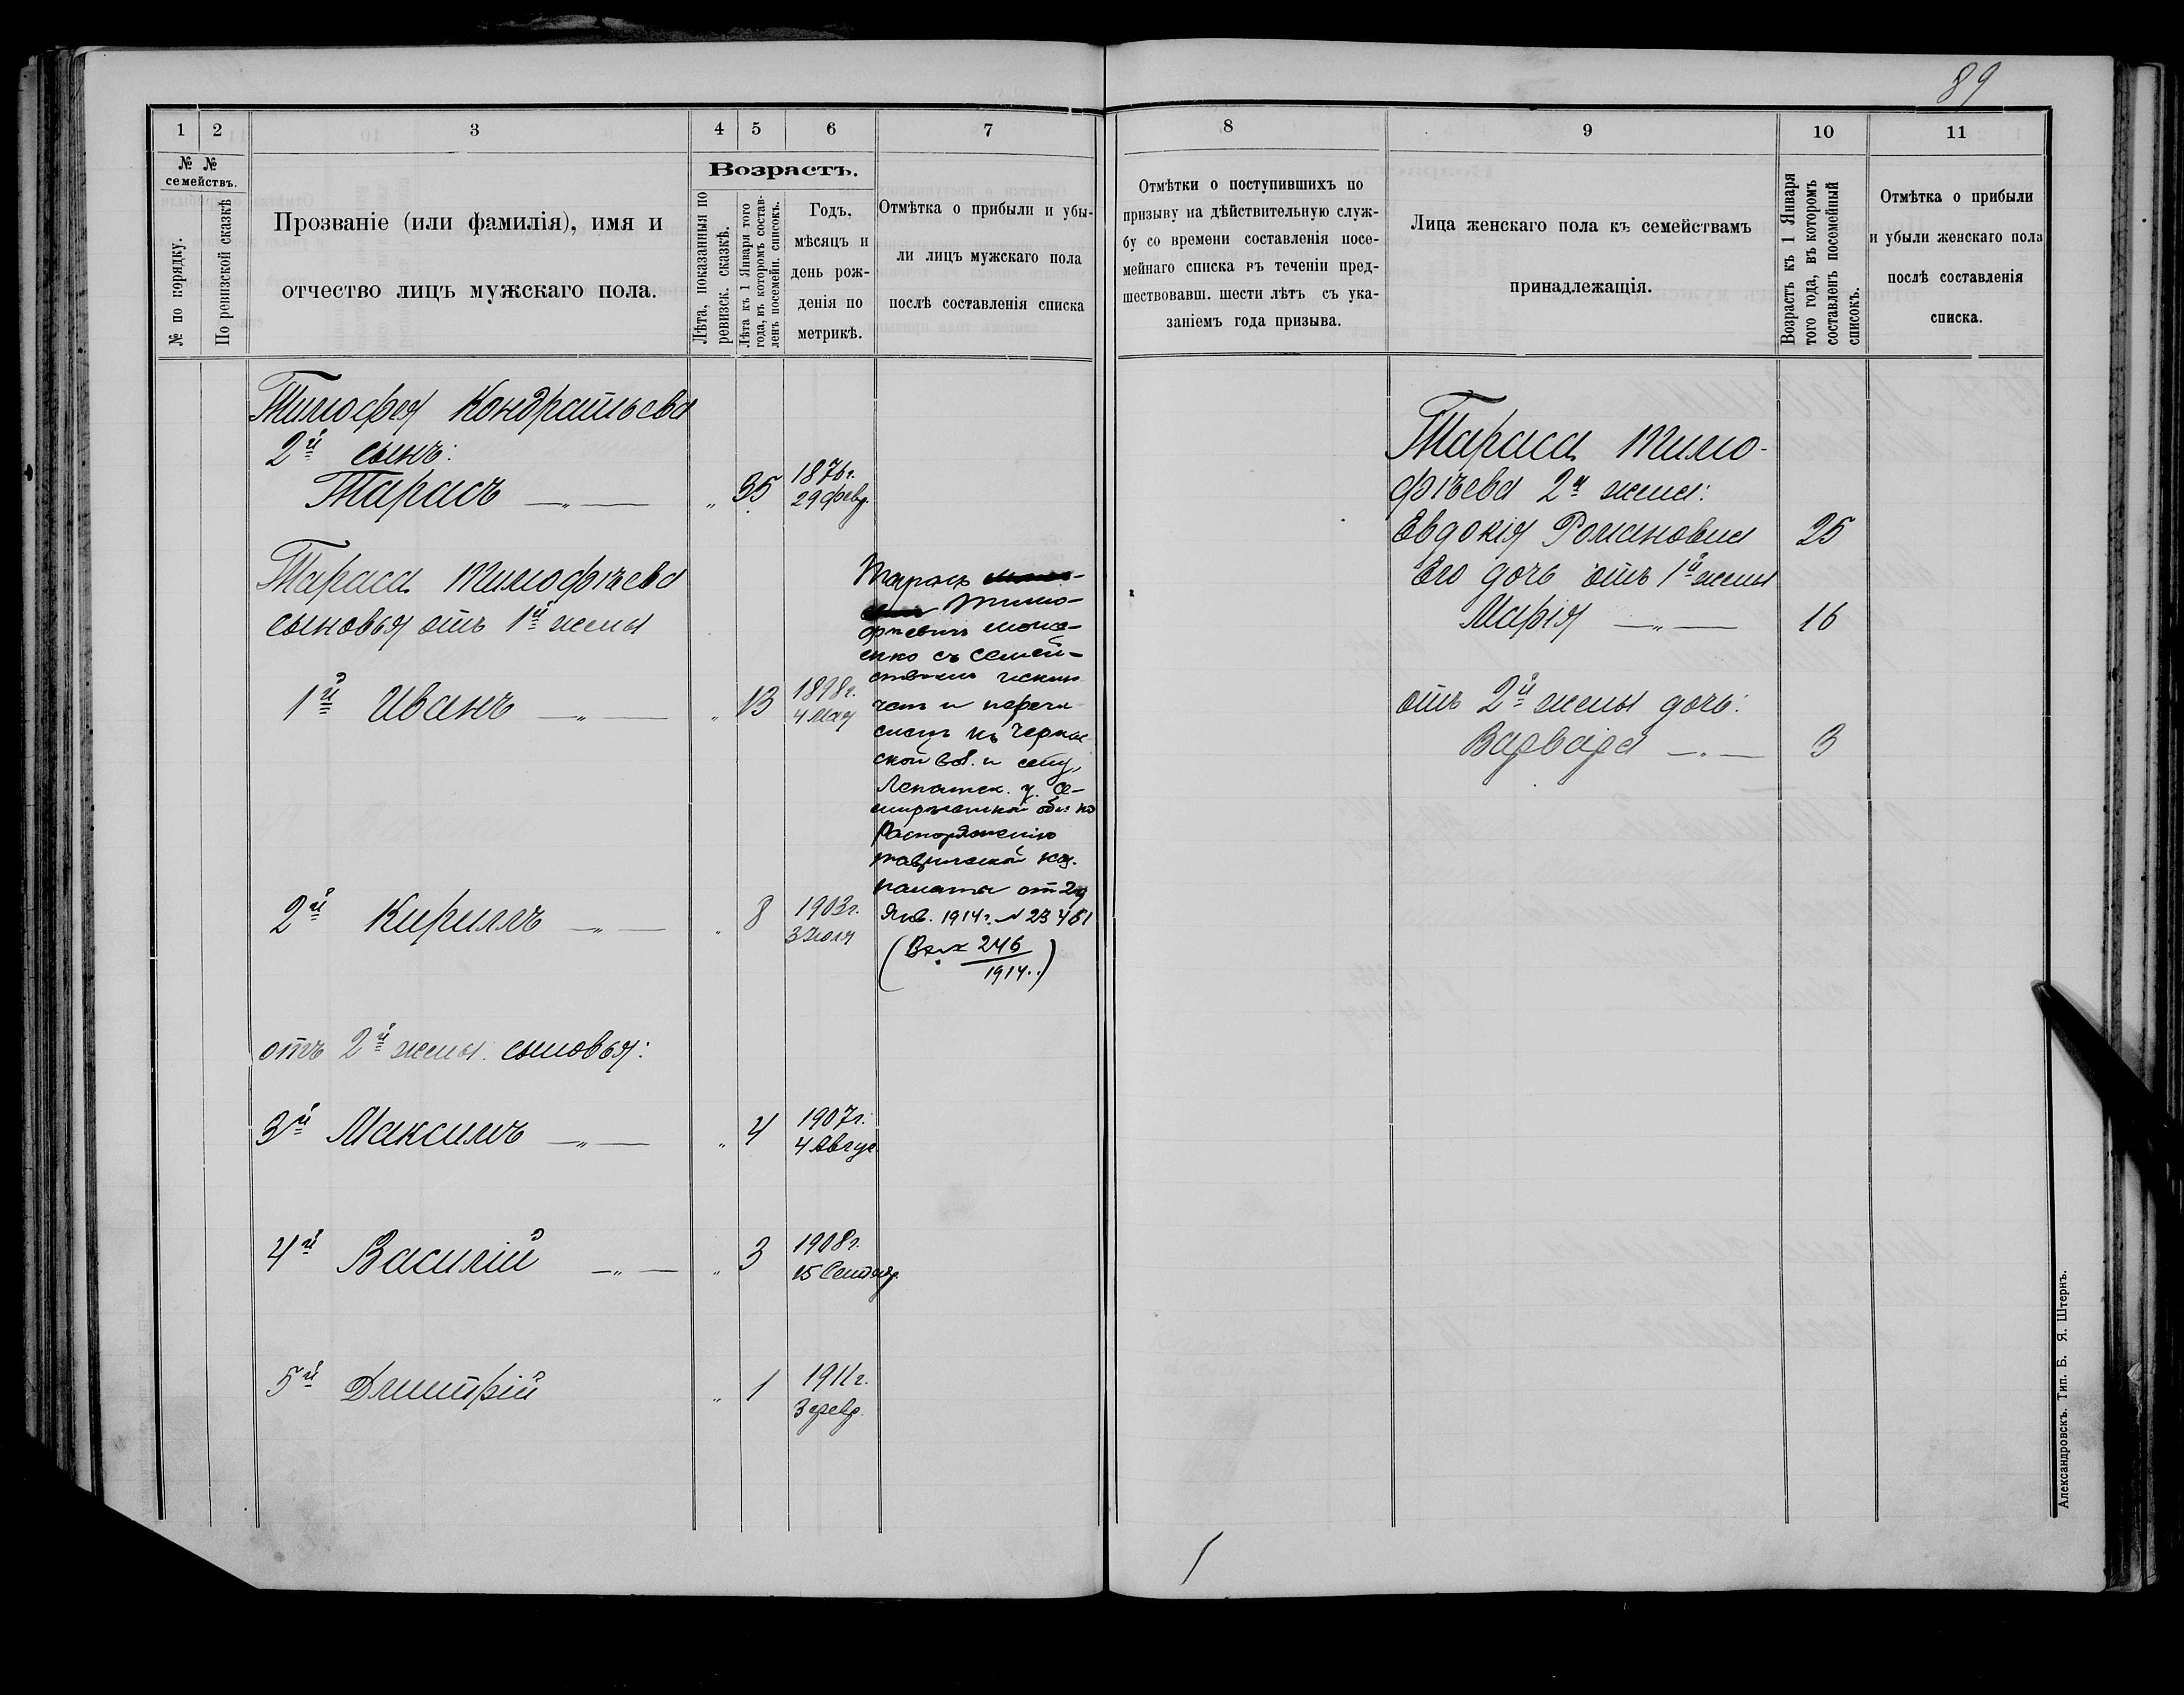 89
1 2 3 4 5 6 7 8 9 10 11
№ № семействъ.
№ по порядку.
По ревизской сказкѣ
Прозваніе (или фамилія), имя и
отчество лицъ мужскаго пола.
Возрастъ.
Лѣта, показанныя по
ревизск. сказкѣ.
Лѣта къ 1 Января того
года, въ которомъ состав-
ленъ посемейн. списокъ.
Годъ,
мѣсяцъ и
день рож-
денія по
метрикѣ.
Отмѣтка о прибыли и убы-
ли лицъ мужскаго пола
послѣ составленія списка
Отмѣтки о поступившихъ по
призыву на дѣйствительную служ-
бу со времени составленія посе-
мейнаго списка въ теченіи пред-
шествовавш. шести лѣтъ съ ука-
заніемъ года призыва.
Лица женскаго пола къ семействамъ
принадлежащія.
Возрастъ къ 1 Января
того года, въ которомъ
составленъ посемейный
списокъ.
Отмѣтка о прибыли
и убыли женскаго пола
послѣ составленія
списка.
Тимофея Кондратьева
2й сынъ:
Тарасъ —„— „ 35 1876г.
29 февр.
Тараса Тимофѣева
сыновья отъ 1й жены
1й Иванъ —„— „ 13 1898г.
4 мая
2й Кириллъ —„— „ 8 1903г.
3 Июля
отъ 2й жены сыновья:
3й Максимъ —„— „ 4 1907г.
4 Авгус.
4й Василій —„— „ 3 1908г.
15 Сентяб.
5й Дмитрій „ 1 1911г.
3 февр.
Тарасъ
Тимо-
фѣевичъ
съ семей-
ствомъ исклю
ченъ и перечи
сленъ къ
ской вол. и
у. Се-
мирѣченской обл. по
Распоряженію
Таврической каз.
палаты от 29
Янв. 1914г. № 23461
(Вх. № 246
1914.)
Тараса Тимо-
фѣева 2я жена:
Евдокія Романовна 25
Его дочь отъ 1й жены
Марія —„— 16
отъ 2й жены дочь:
Варвара —„— 3
Александровскъ. Тип. Б. Я. Штернъ.